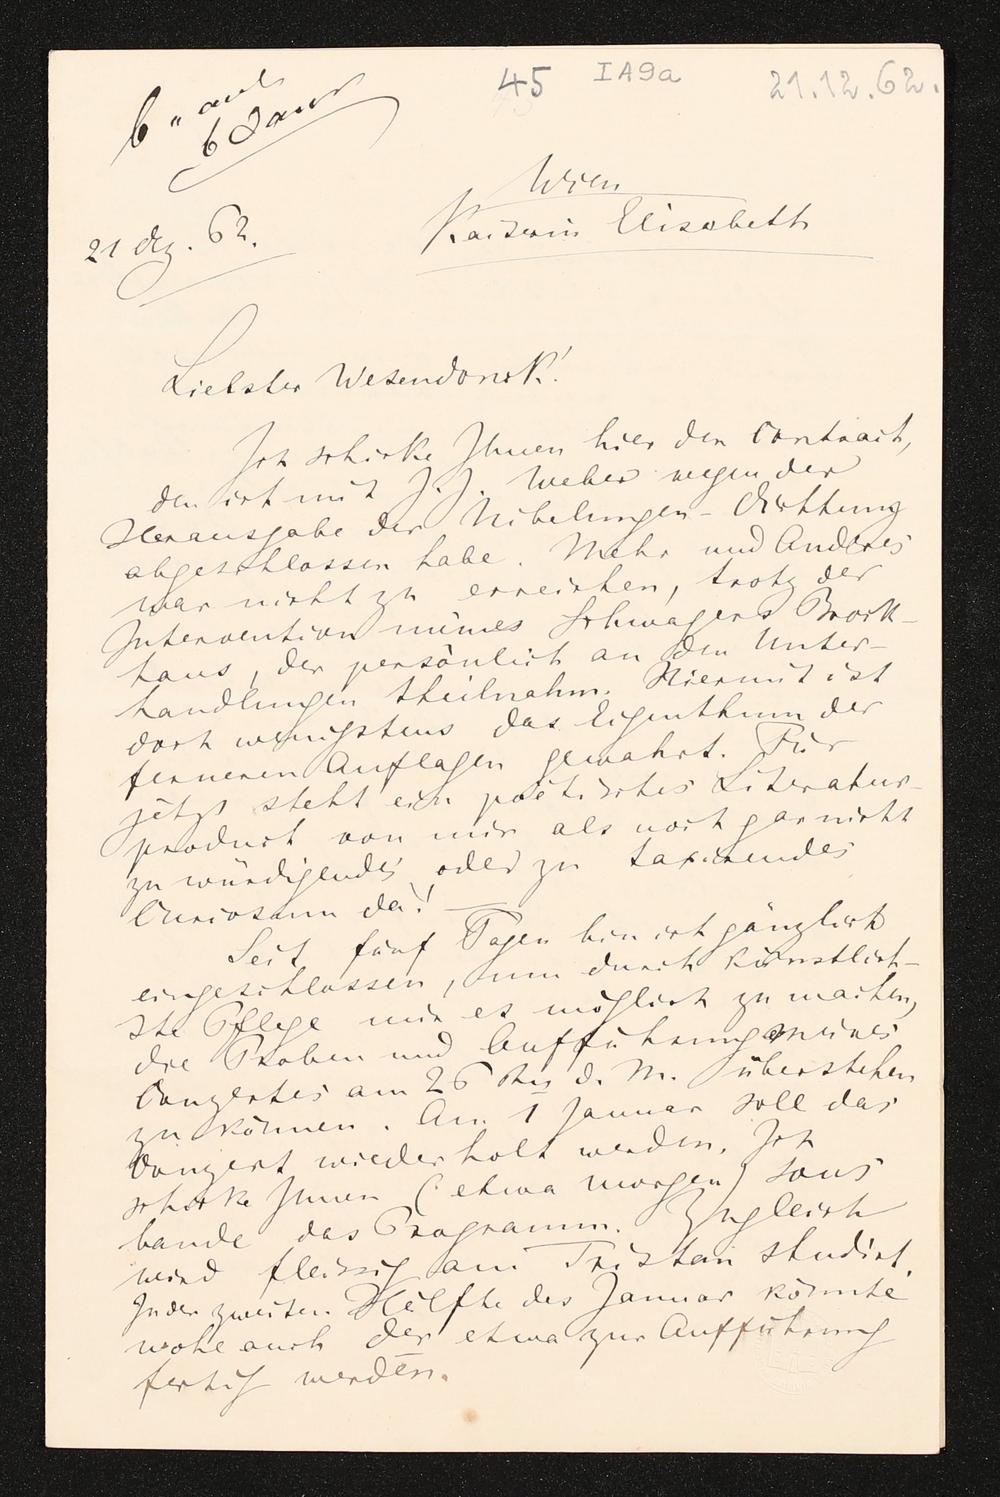 45 IA9a 21.12.62.
6
6 Janr
Wien
Kaiserin Elisabeth
21 dez. 62.
Liebster Wesendonck!
Ich schicke Ihnen hier den Contract,
den ich mit J. J. Weber wegen der
Herausgabe der Nibelungen-Dichtung
abgeschlossen habe. Mehr und Anderes
war nicht zu erreichen, trotz der
Intervention meines Schwagers Brock-
haus, der persönlich an den Unter-
handlungen theilnahm. Hiermit ist
doch wenigstens das Eigenthum der
ferneren Auflagen gewahrt. Für
jetzt steht ein poëtisches Literatur-
product von mir als noch gar nicht
zu würdigendes oder zu taxirendes
Curiosum da! —
Seit fünf Tagen bin ich gänzlich
eingeschlossen, um durch künstlich-
ste Pflege mir es möglich zu machen,
die Proben und Aufführung meines
Conzertes am 26 d. M. überstehen
zu können. Am 1 Januar soll das
Conzert wiederholt werden. Ich
schicke Ihnen (etwa morgen) sous
bande das Programm. Zugleich
wird fleissig am Tristan studirt.
In der zweiten Hälfte des Januar könnte
wohl auch der etwa zur Aufführung
fertig werden.